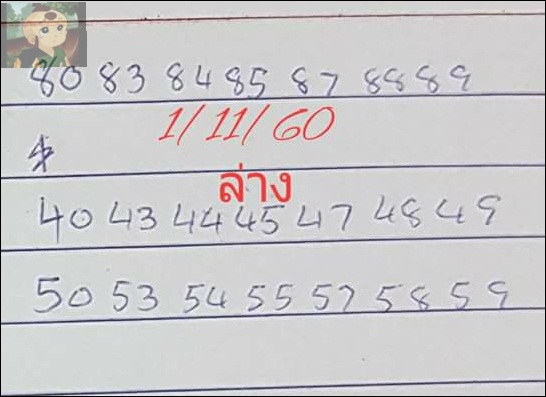 80 83 84 85 87 88 89
1/11/60
ล่าง
40 43 44 45 47 48 49
50 53 54 55 57 58 59